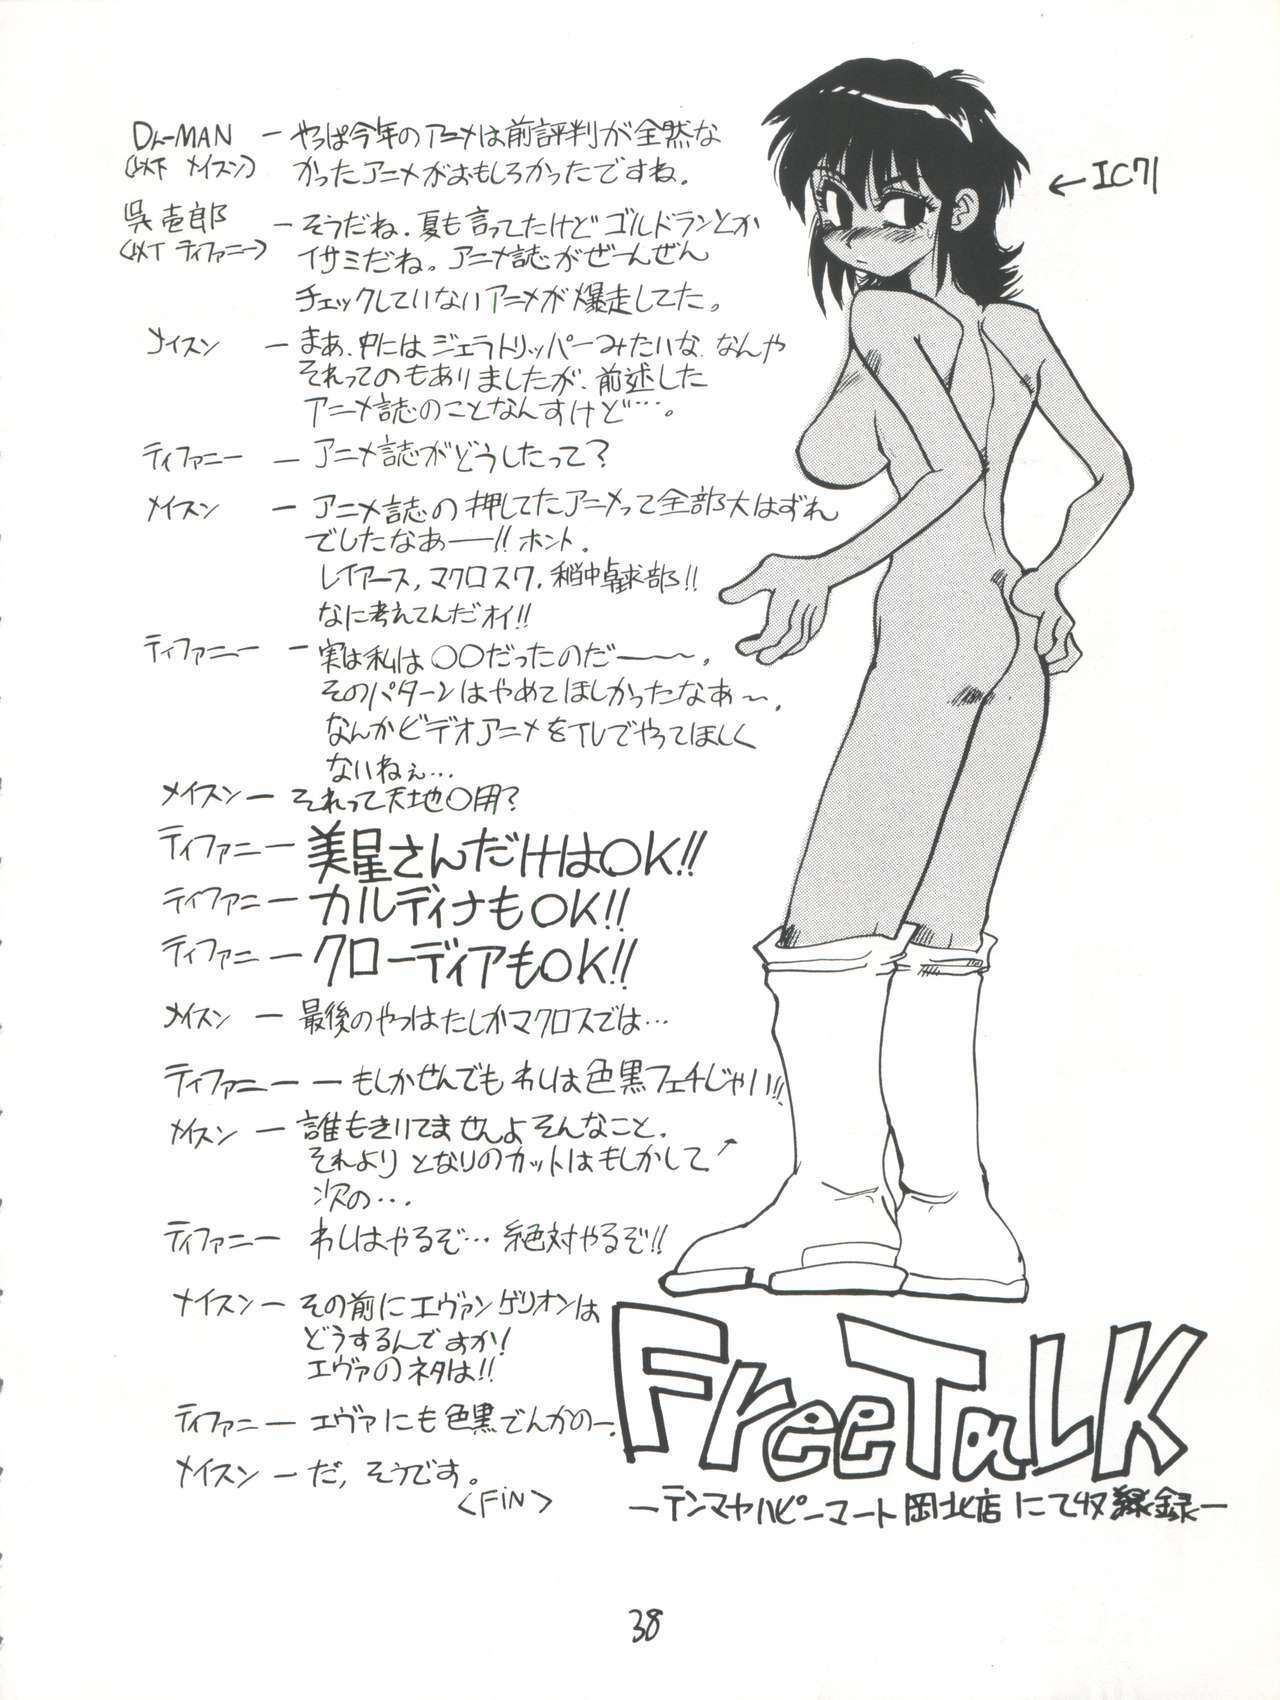 Dr-MAN ー やっぱ今年のアニメは前評判が全然な
(以下 メイスン) かったアニメがおもしろかったですね。
呉壱郎 ー そうだね.夏も言ってたけどゴルドランとか
(以下 ティファニー) イサミだね。アニメ誌がぜーんぜん
チェックしていないアニメが爆走してた。
メイスン ー まぁ、中にはジェラトリッパーみたいな、なんや
それってのもありましたが、前述した
アニメ誌のことなんすけど…。
ティファニー ー アニメ誌がどうしたって?
メイスン ー アニメ誌の押してたアニメって全部大はずれ
でしたなあ――!! ホント.
レイアース,マクロス7,稲中卓球部!!
なに考えてんだオイ!!
ティファニー ー 実は私は〇〇だったのだ――〜.
そのパターンはやめてほしかったなあ〜.
なんかビデオアニメをTVでやってほしく
ないねぇ…
メイスン ー それって天地〇用?
ティファニー ー 美星さんだけはOK!!
ティファニー ー カルディナもOK!!
ティファニー ー クローディアもOK!!
メイスン ー 最後のやつはたしかマクロスでは…
ティファニー ー もしかせんでもわしは色黒フェチじゃい!!
メイスン ー 誰もきいてませんよそんなこと.
それより となりのカットはもしかして↗
次の….
ティファニー わしはやるぞ… 絶対やるぞ!!
メイスン ー その前にエヴァンゲリオンは
どうするんですか!
エヴァのネタは!!
ティファニー ー エヴァにも色黒でんかのー.
メイスン ー だ,そうです。
<FiN>
← IC71
FreeTaLK
ー テンマヤハピーマート岡北店 にて収録 ー
38